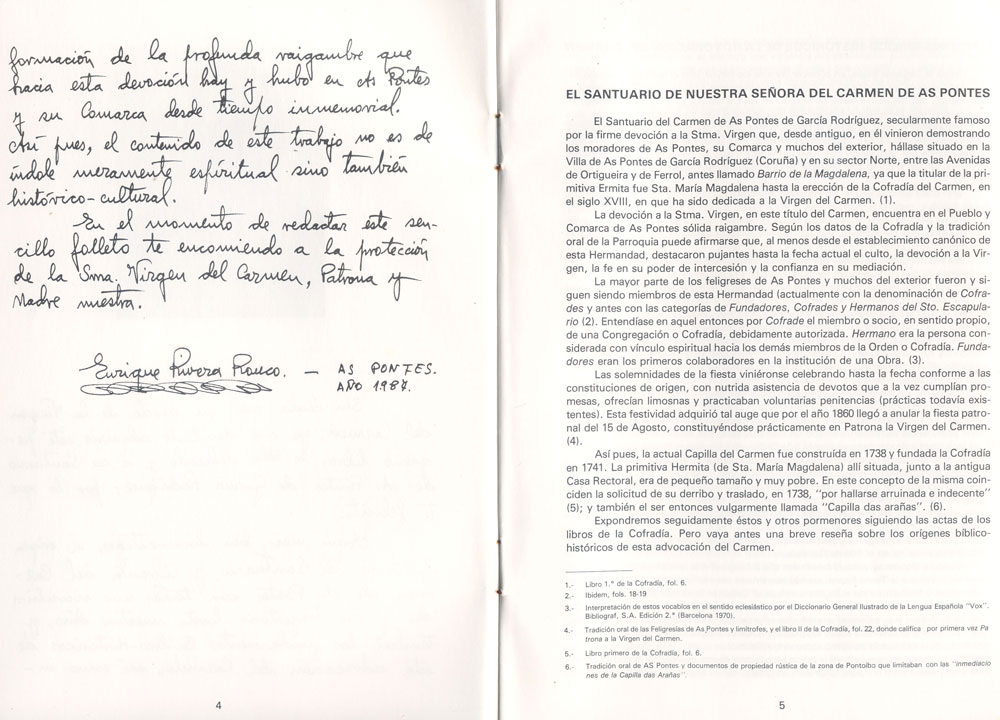 formación de la profunda raigambre que
hacia esta devoción hay y hubo en As Pontes
y su Comarca desde tiempo inmemorial.
Así pues, el contenido de este trabajo no es de
índole meramente espiritual sino también
histórico-cultural.
En el momento de redactar este sen-
cillo folleto te encomiendo a la protección
de la Sma. Virgen del Carmen, Patrona y
Madre nuestra.
Enrique Rivera Rouco. — AS PONTES.
AÑO 1987.
4
EL SANTUARIO DE NUESTRA SEÑORA DEL CARMEN DE AS PONTES
El Santuario del Carmen de As Pontes de García Rodríguez, secularmente famoso
por la firme devoción a la Stma. Virgen que, desde antiguo, en él vinieron demostrando
los moradores de As Pontes, su Comarca y muchos del exterior, hállase situado en la
Villa de As Pontes de García Rodríguez (Coruña) y en su sector Norte, entre las Avenidas
de Ortigueira y de Ferrol, antes llamado Barrio de la Magdalena, ya que la titular de la pri-
mitiva Ermita fue Sta. María Magdalena hasta la erección de la Cofradía del Carmen, en
el siglo XVIII, en que ha sido dedicada a la Virgen del Carmen. (1).
La devoción a la Stma. Virgen, en este título del Carmen, encuentra en el Pueblo y
Comarca de As Pontes sólida raigambre. Según los datos de la Cofradía y la tradición
oral de la Parroquia puede afirmarse que, al menos desde el establecimiento canónico de
esta Hermandad, destacaron pujantes hasta la fecha actual el culto, la devoción a la Vir-
gen, la fe en su poder de intercesión y la confianza en su mediación.
La mayor parte de los feligreses de As Pontes y muchos del exterior fueron y si-
guen siendo miembros de esta Hermandad (actualmente con la denominación de Cofra-
des y antes con las categorías de Fundadores, Cofrades y Hermanos del Sto. Escapula-
rio (2). Entendíase en aquel entonces por Cofrade el miembro o socio, en sentido propio,
de una Congregación o Cofradía, debidamente autorizada. Hermano era la persona con-
siderada con vínculo espiritual hacia los demás miembros de la Orden o Cofradía. Funda-
dores eran los primeros colaboradores en la institución de una Obra. (3).
Las solemnidades de la fiesta viniéronse celebrando hasta la fecha conforme a las
constituciones de origen, con nutrida asistencia de devotos que a la vez cumplían pro-
mesas, ofrecían limosnas y practicaban voluntarias penitencias (prácticas todavía exis-
tentes). Esta festividad adquirió tal auge que por el año 1860 llegó a anular la fiesta patro-
nal del 15 de Agosto, constituyéndose prácticamente en Patrona la Virgen del Carmen.
(4).
Así pues, la actual Capilla del Carmen fue construída en 1738 y fundada la Cofradía
en 1741. La primitiva Hermita (de Sta. María Magdalena) allí situada, junto a la antigua
Casa Rectoral, era de pequeño tamaño y muy pobre. En este concepto de la misma coin-
ciden la solicitud de su derribo y traslado, en 1738, "por hallarse arruinada e indecente"
(5); y también el ser entonces vulgarmente llamada "Capilla das arañas". (6).
Expondremos seguidamente éstos y otros pormenores siguiendo las actas de los
libros de la Cofradía. Pero vaya antes una breve reseña sobre los orígenes bíblico-
históricos de esta advocación del Carmen.
1.- Libro 1.º de la Cofradía, fol. 6.
2.- Ibidem, fols. 18-19
3.- Interpretación de estos vocablos en el sentido eclesiástico por el Diccionario General Ilustrado de la Lengua Española "Vox".
Bibliograf, S.A. Edición 2.ª (Barcelona 1970).
4.- Tradición oral de las Feligresías de As Pontes y limítrofes, y el libro II de la Cofradía, fol. 22, donde califica por primera vez Pa
trona a la Virgen del Carmen.
5.- Libro primero de la Cofradía, fol. 6.
6.- Tradición oral de AS Pontes y documentos de propiedad rústica de la zona de Pontoibo que limitaban con las "inmediacio
nes de la Capilla das Arañas".
5